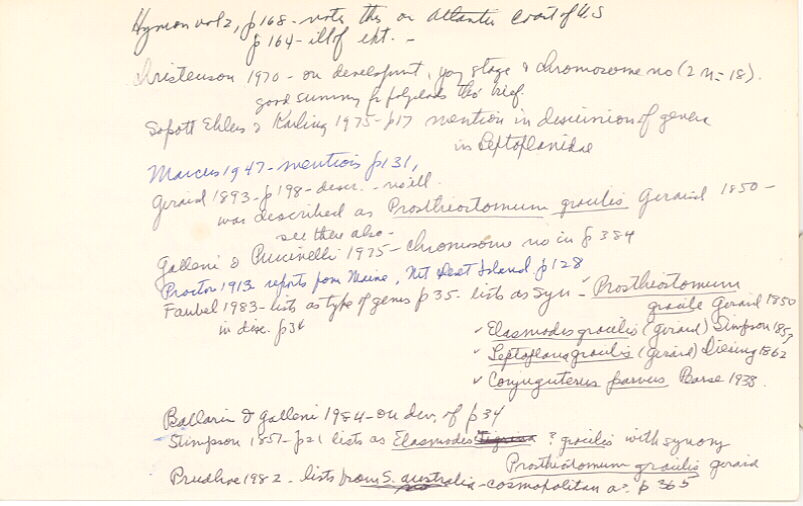 Hyman vol 2, p 168 - notes this on Atlantic Coast of U.S
p 164 - ill of ext. -
Christenson 1970 - on development, yg stage & chromosome no (2n=18).
good summy for polyclads tho' brief.
Sopott Ehlers & Karling 1975 - p17 mention in discussion of genera
in Leptoplanidae
Marcus 1947 - mentions p131,
Gerard 1893 - p198 - descr. - no ill.
was described as Prostheostomum gracilis Gerard 1850 -
see there also -
Galleni & Puccinelli 1975 - chromosome no in p 384
Proctor 1913 reports from Maine, Mt Desert Island p128
Faubel 1983 - lists as type of genus p35 - lists as syn - ✓ Prostheostomum
gracile Gerard 1850
in disc. p34
✓ Elasmodes gracilis (Gerard) Stimpson 1857
✓ Leptoplana gracilis (Gerard) Diesing 1862
✓ Conjuguterus parvus Barse 1938.
Ballarin & Galleni 1984 - on dev. of p34
Stimpson 1857 - p21 lists as Elasmodes ? gracilis with synony
Prostheostomum gracilis gerard
Prudhoe 1982 - lists from S. australia - cosmopolitan p 365